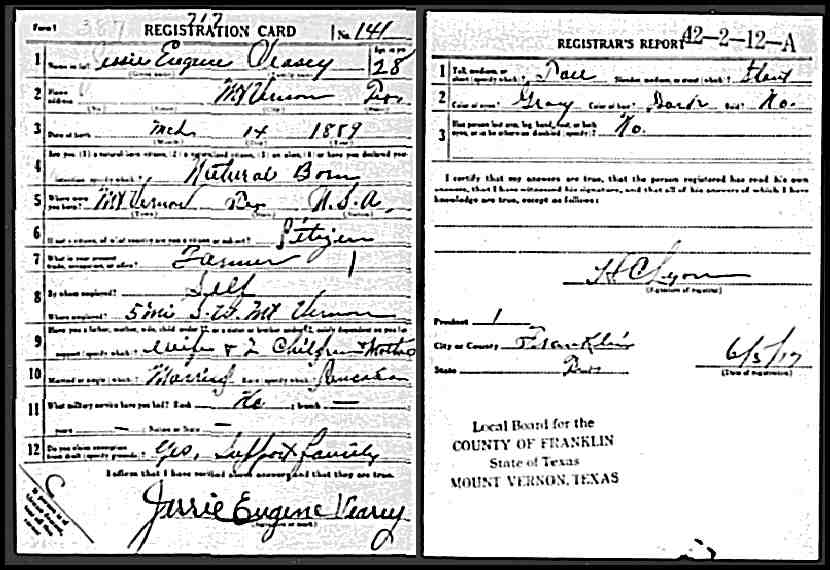 Form 1 387 717 REGISTRATION CARD No. 141
1 Name in full Jessie Eugene Age, in yrs. 28
(Given name) (Family name)
2 Home address Mt Vernon Tex
(No.) (Street) (City) (State)
3 Date of birth Mch 14 1889
(Month) (Day) (Year)
4 Are you (1) a natural-born citizen, (2) a naturalized citizen, (3) an alien, (4) or have you declared your
intention (specify which)? Natural Born
5 Where were you born? Mt Vernon Tex U.S.A.
(Town) (State) (Nation)
6 If not a citizen, of what country are you a citizen or subject? Citizen
7 What is your present trade, occupation, or office? Farmer 1
8 By whom employed? Self
Where employed? 5 mi S.W. Mt Vernon
9 Have you a father, mother, wife, child under 12, or a sister or brother under 12, solely dependent on you for
support (specify which)? Wife & 2 Children & Mother
10 Married or single (which)? Married Race (specify which)? Caucasian
11 What military service have you had? Rank No ; branch —
years — ; Nation or State —
12 Do you claim exemption from draft (specify grounds)? Yes, Support Family
I affirm that I have verified above answers and that they are true.
Jessie Eugene
(Signature or mark)
REGISTRAR'S REPORT 42-2-12-A
1 Tall, medium, or short (specify which)? Tall Slender, medium, or stout (which)? Stout
2 Color of eyes? Gray Color of hair? Dark Bald? No.
3 Has person lost arm, leg, hand, foot, or both eyes, or is he otherwise disabled (specify)? No.
I certify that my answers are true, that the person registered has read his own
answers, that I have witnessed his signature, and that all of his answers of which I have
knowledge are true, except as follows:
H C Lyon
(Signature of registrar)
Precinct 1
City or County Franklin
State Tex 6/5/17
(Date of registration)
Local Board for the
COUNTY OF FRANKLIN
State of Texas
MOUNT VERNON, TEXAS